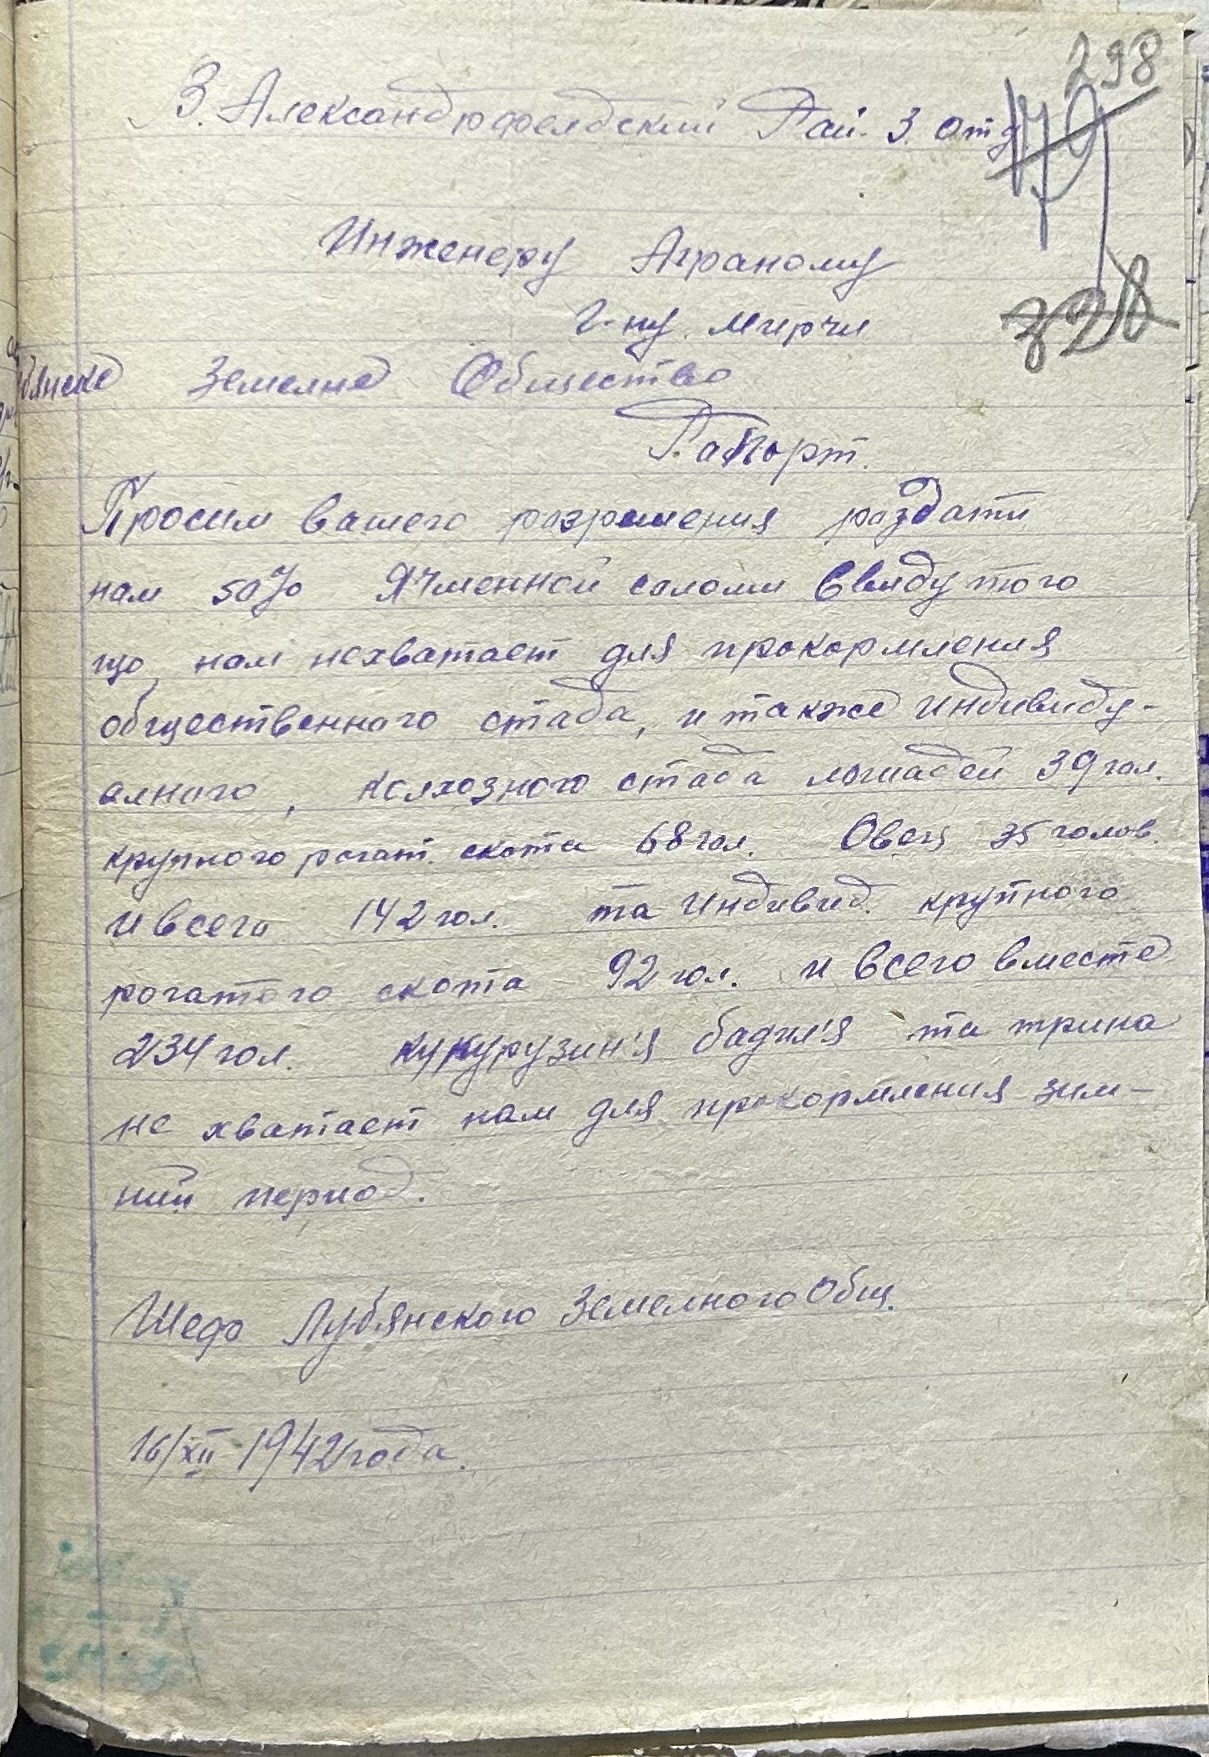 298
З. Александрофелдский Рай. З. отд
179
Инженеру Аграному
Г-ну Мирчи
328
бянске Земелне Общество
Рапорт.
Просим вашего разрешения раздати
нам 50% Ячменной соломи ввиду того
що нам нехватает для прокормления
общественного стада, и также индивиду-
алного, колхозного стада лошадей 39 гол.
крупного рогат. скота 68 гол. Овец 35 голов.
и всего 142 гол. та индивид. крупного
рогатого скота 92 гол. и всего вместе
234 гол. кукурузин'я бадил'я та трина
не хватает нам для прокормления зим-
ний период.
Шеф Лубянского Земелного Общ.
16/XII-1942 года.